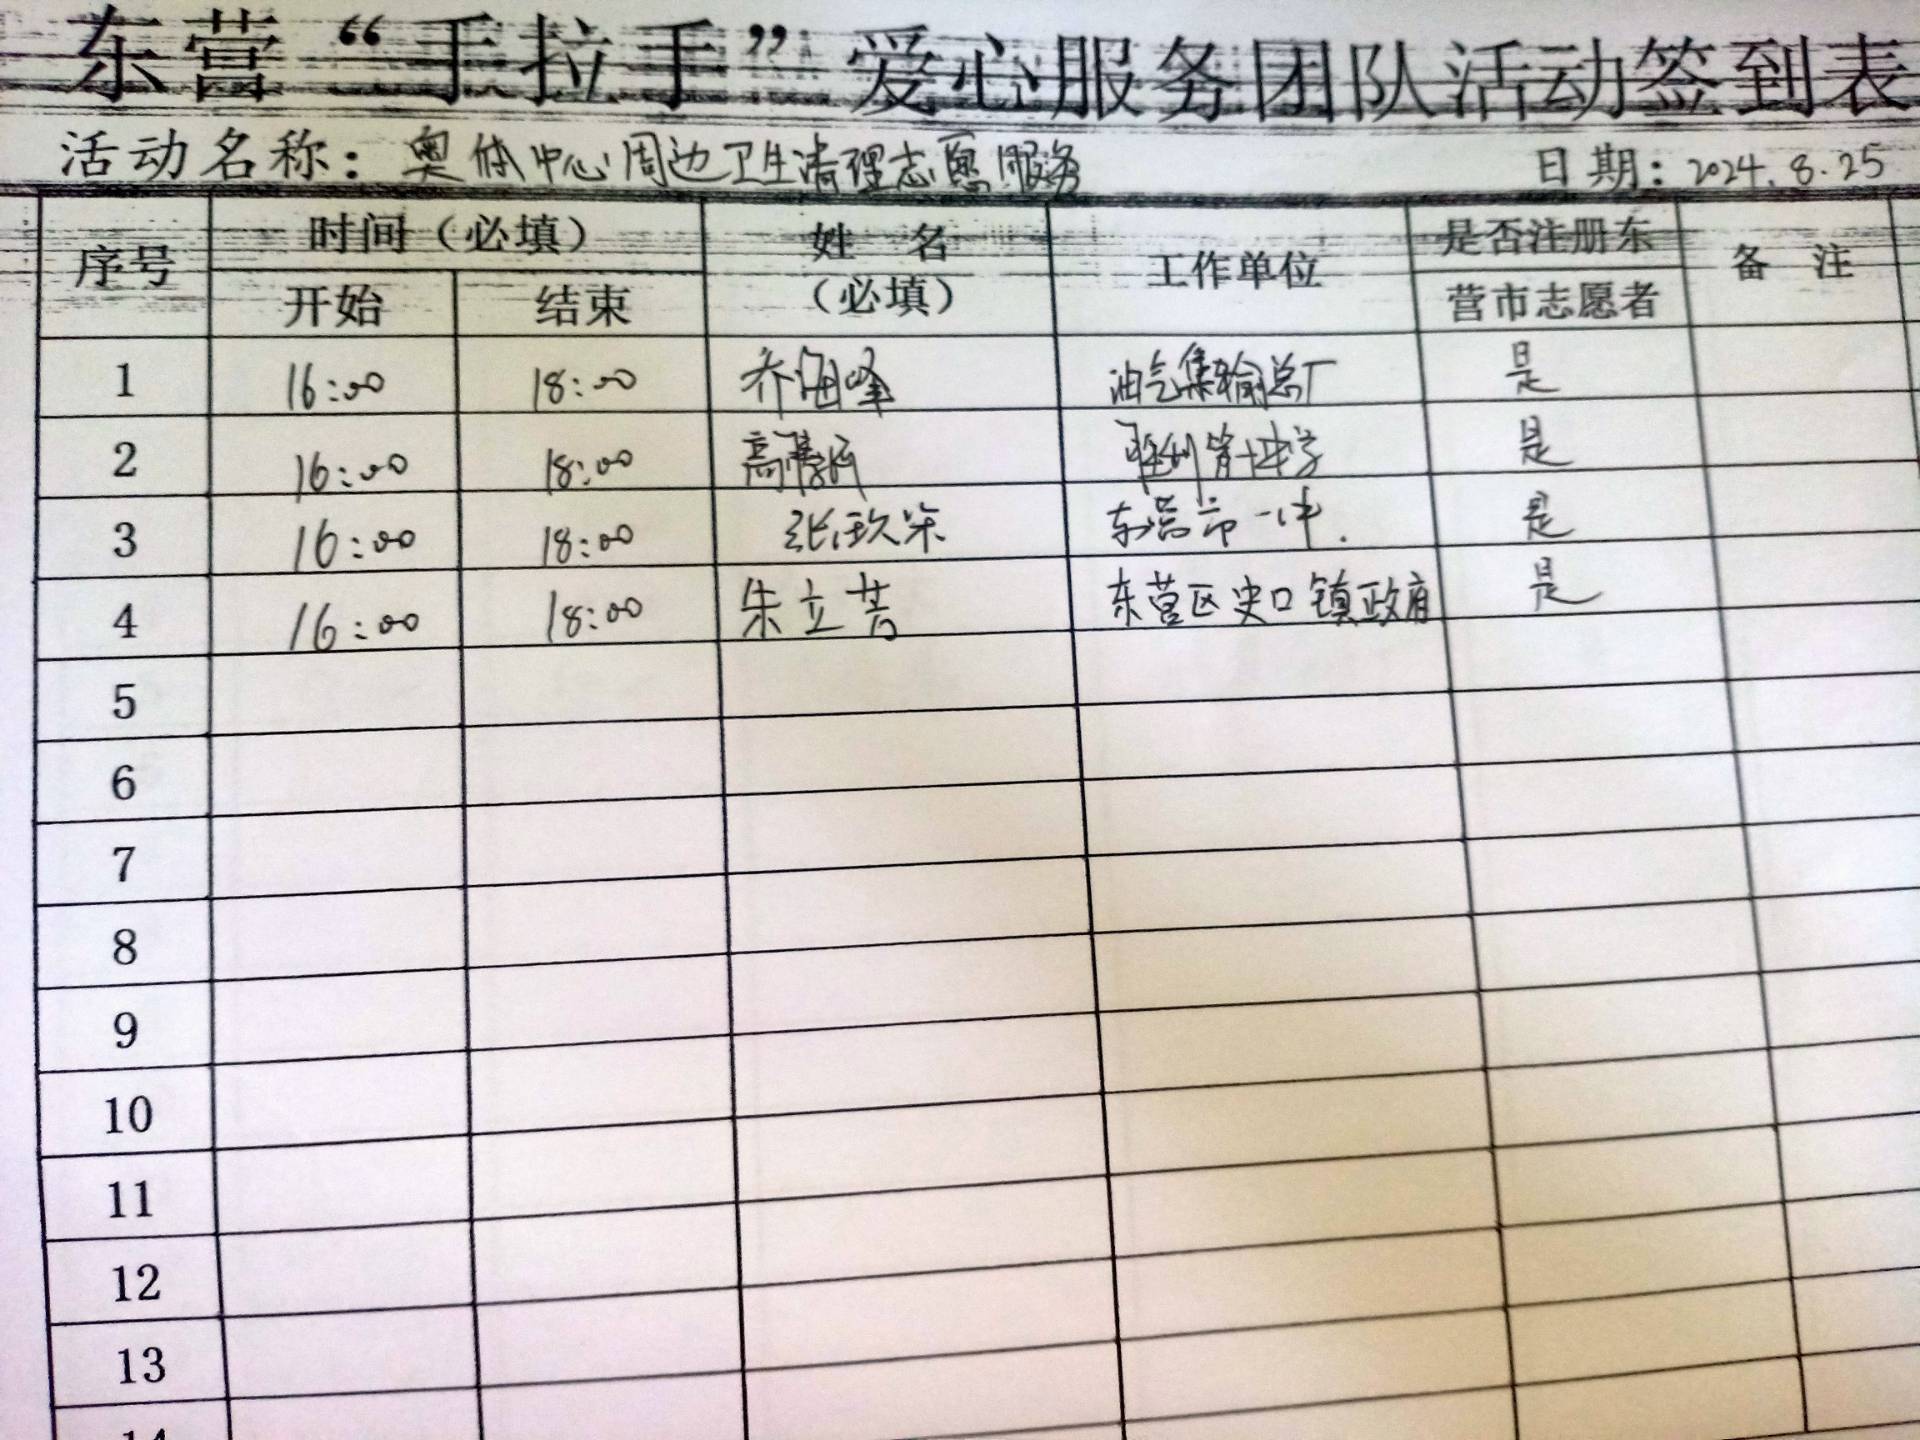 东营“手拉手”爱心服务团队活动签到表
活动名称：奥体中心周边卫生清理志愿服务 日期：2024.8.25
序号 时间（必填） 姓 名（必填） 工作单位 是否注册东营市志愿者 备 注
开始 结束
1 16:00 18:00 乔海峰 油气集输总厂 是
2 16:00 18:00 高 是
3 16:00 18:00 张玖 东营市一中. 是
4 16:00 18:00 朱立芳 东营区史口镇政府 是
5
6
7
8
9
10
11
12
13
14